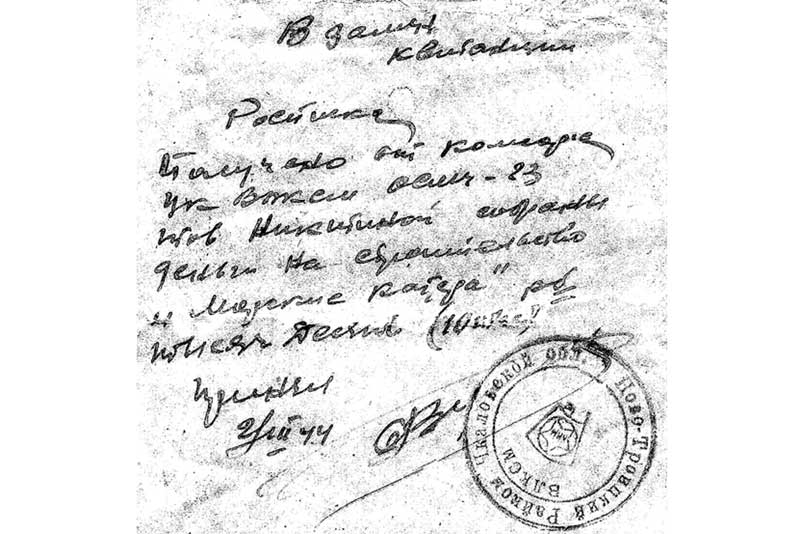 В замен
квитанции
Росписка
Получено от комсорга
ЦК ВЛКСМ осмч-23
тов Никитиной собраны
деньги на строительство
„Морские катера" руб
тысяч Десять (10 тыс)
Принял
III 44
Ново-Троицкий Райком Чкаловской обл.
ВЛКСМ